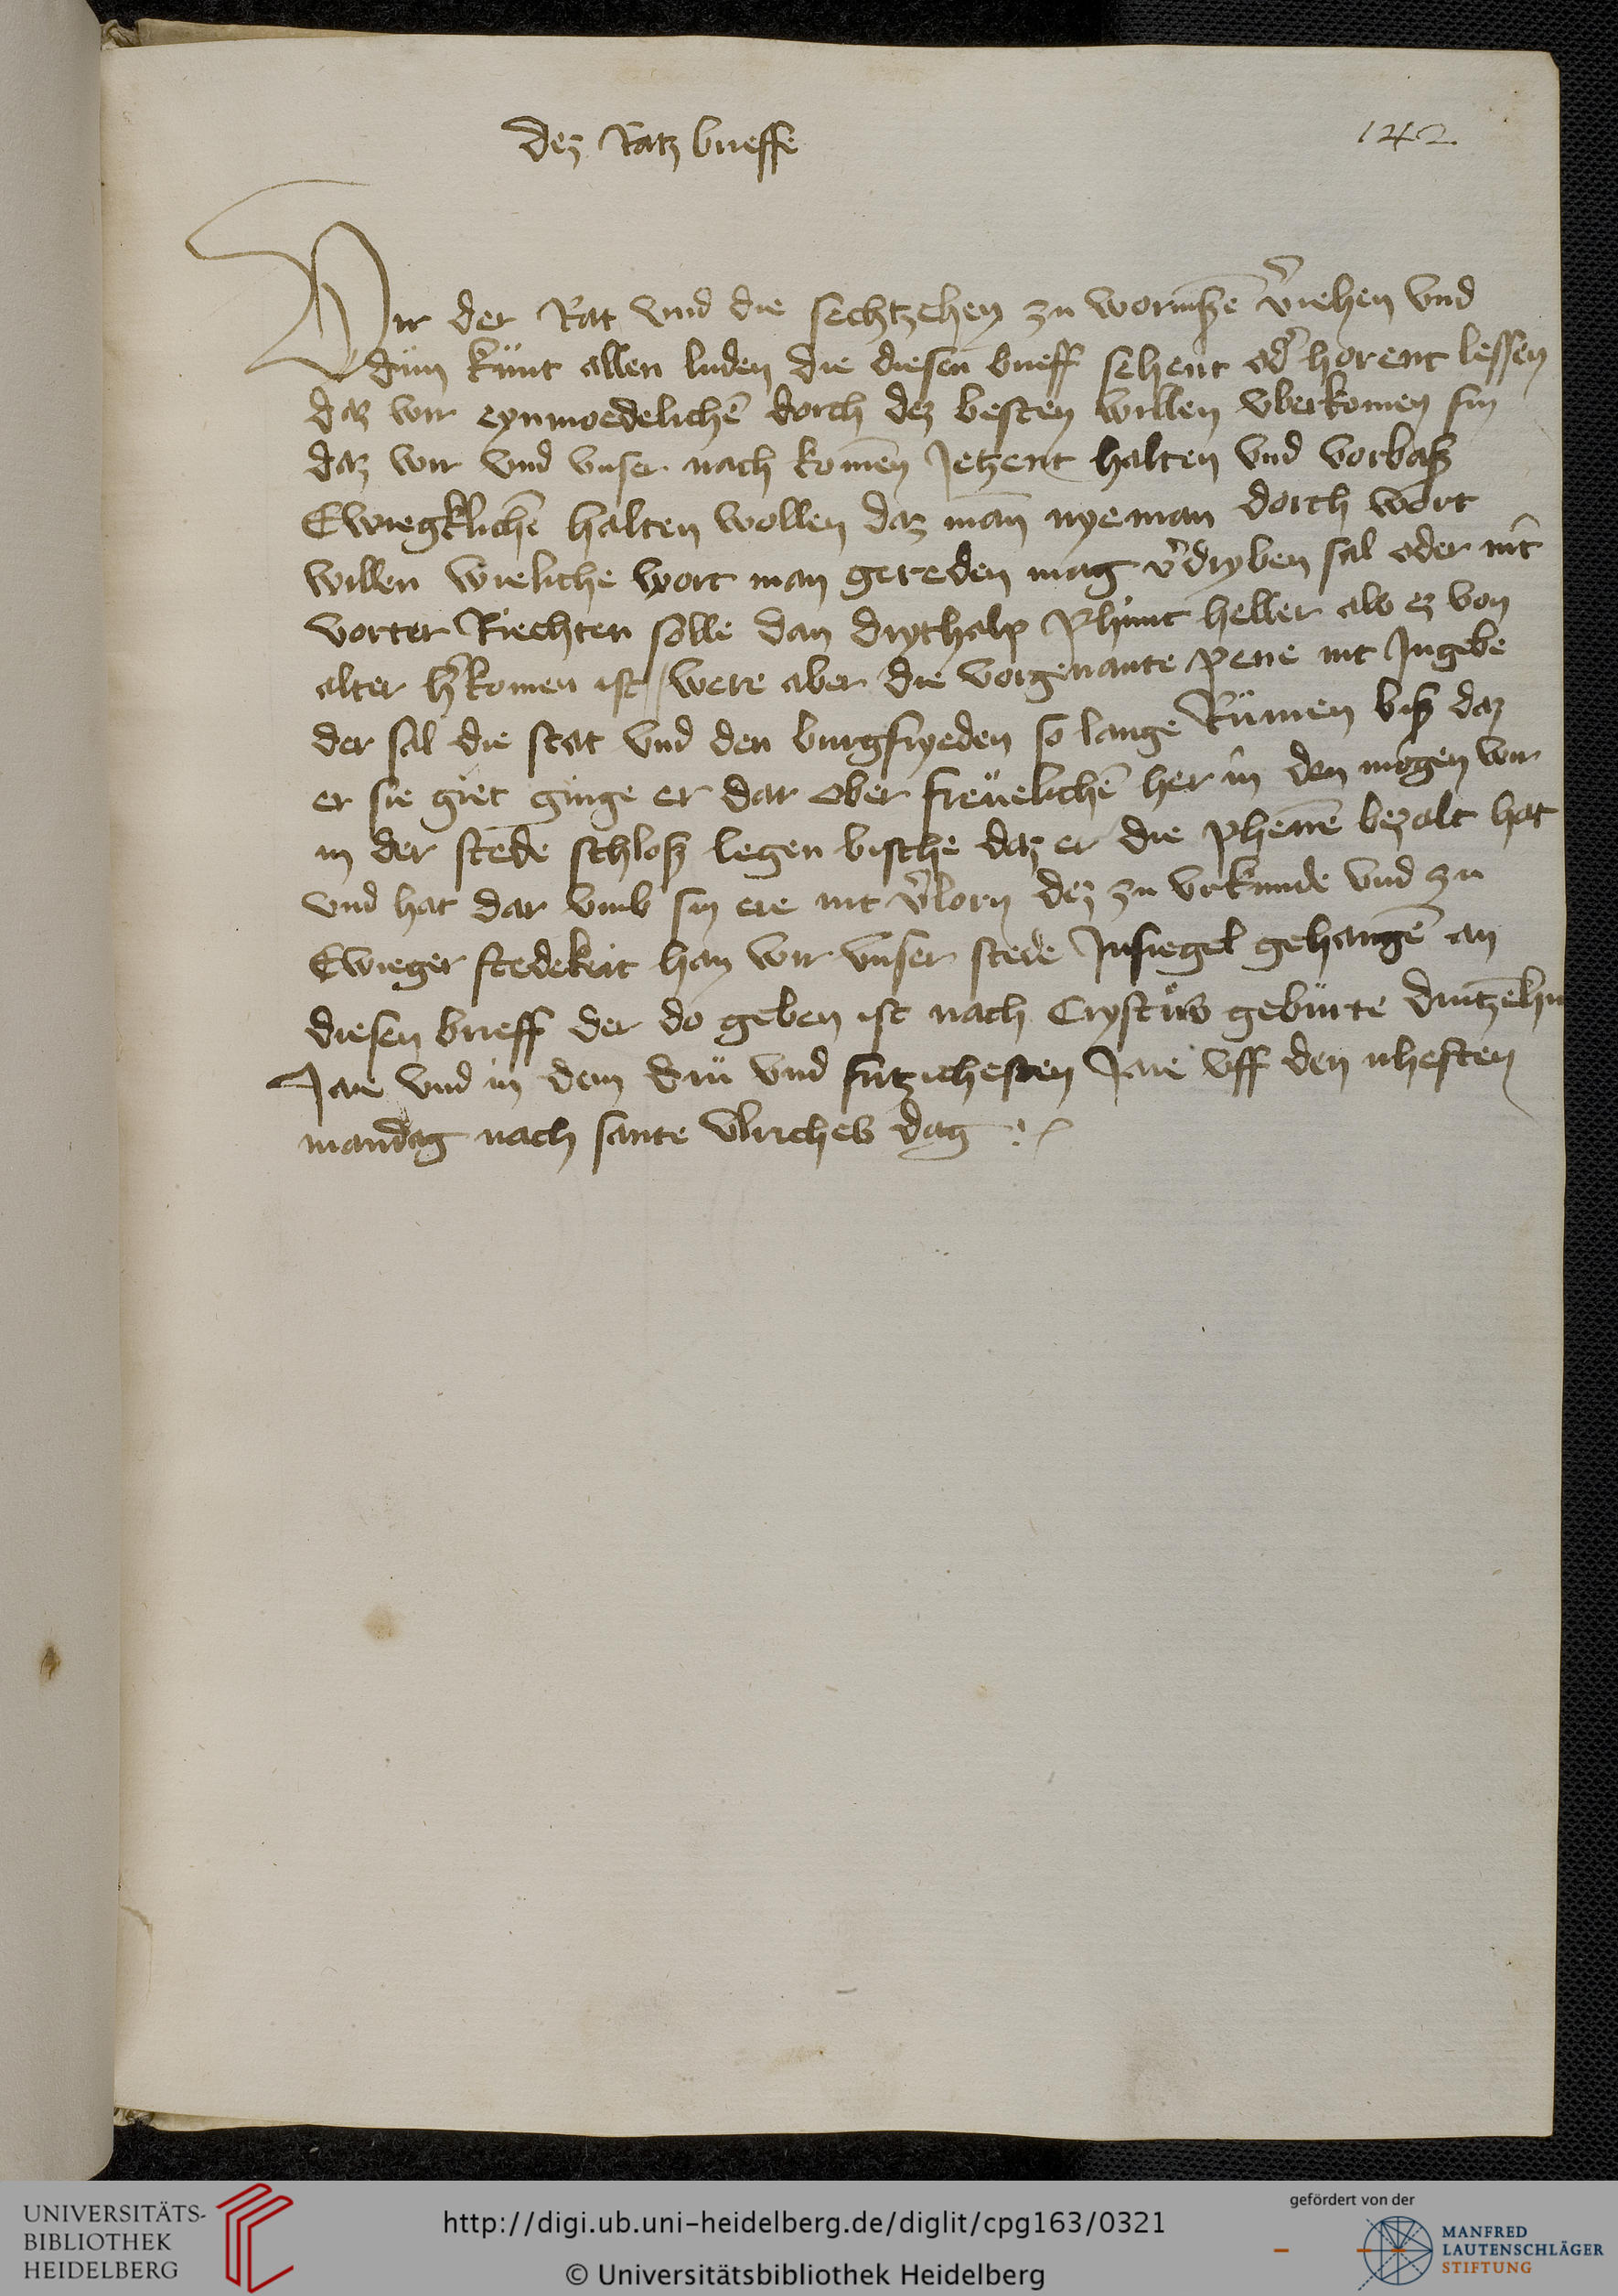 dez Ratz brieffe
142
Wir der Rat vnd die sechtzehen zu wormsze v̓iehen vnd
dün künt allen luden die diesen brieff sehent od̓ horent lessen
daz wir eynmoedelichē dorch dez besten willen vberkomen sin
daz wir vnd vnser nach komēn Jetzent halten vnd vorbasz
Ewiegklichē halten wollen daz man̄ nyeman dorch wort
willen wieliche wort man gereden mag v̓dryben sal oder nit
vorter Riechten sölle dan drythalp Phunt heller als ez von
alter h̓komen ist were aber die vorgenante pene nit Ingebe
der sal die stat vnd den burgfryeden so lange Rümen bisz daz
er sie giet ginge er dar ober freüelichē her in den mogen wir
in der stede schlosz legen bische daz er die phenē bezalt hat
vnd hat dar vmb sin ere nit v̓lorn dez zu vrkunde vnd zu
Ewieger stedekeit han wir vnser stede Jnsiegel gehangē an
diesen brieff der do geben ist nach Crystus gebürte drutzehn
Jare vnd in dem drü vnd sutzichesten Jare vff den nhesten
mandag nach sante vlriches dag
UNIVERSITÄTS-
BIBLIOTHEK
HEIDELBERG
http://digi.ub.uni-heidelberg.de/diglit/cpg163/0321
© Universitätsbibliothek Heidelberg
gefördert von der
MANFRED
LAUTENSCHLÄGER
STIFTUNG